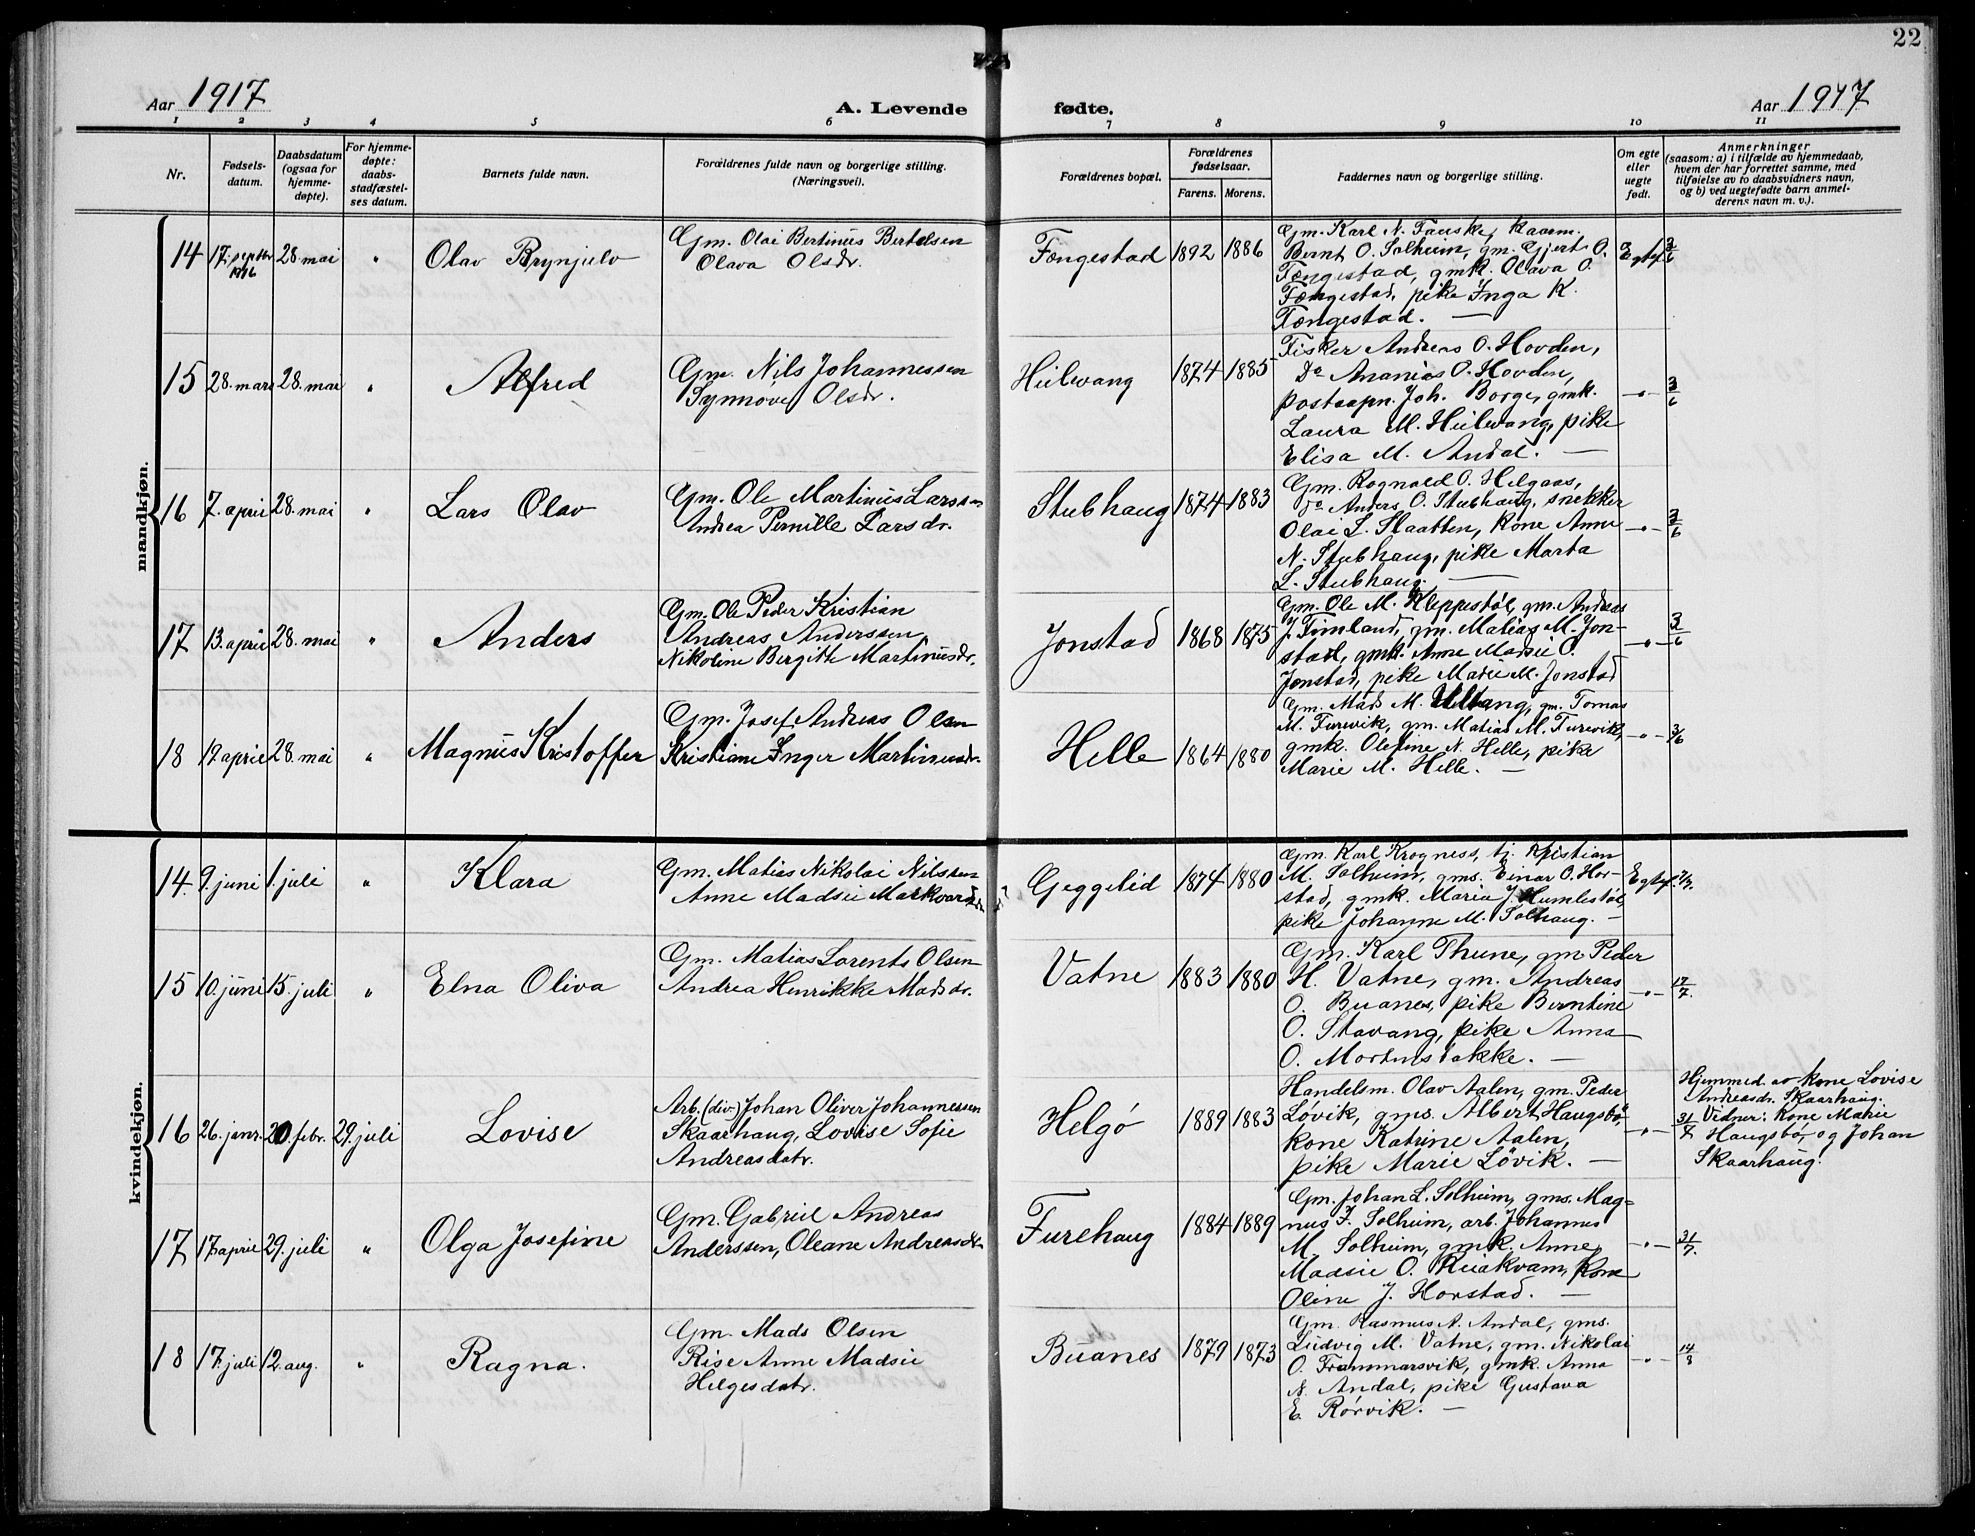 22
Aar 1917
A. Levende fødte.
Aar 1917
1 2 3 4 5 6 7 8 9 10 11
Nr.
Fødsels-
datum.
Daabsdatum
(ogsaa for
hjemme-
døpte).
For hjemme-
døpte:
daabs-
stadfæstel-
ses datum.
Barnets fulde navn.
Forældrenes fulde navn og borgerlige stilling.
(Næringsvei).
Forældrenes bopæl.
Forældrenes
fødselsaar.
Farens. Morens.
Faddernes navn og borgerlige stilling.
Om egte
eller
uegte
født.
Anmerkninger
(saasom: a) i tilfælde av hjemmedaab,
hvem der har forrettet samme, med
tilføielse av to daabsvidners navn,
og b) ved uegtefødte barn anmel-
derens navn m. v.).
mandkjøn.
14 17. septbr 1916 28 mai " Olav Brynjulv
Gm. Olai Bertinus Bertelsen
Olava Olsdr.
Fængestad 1892 1886
Gm. Karl N. Fauske, Kaarm.
Bernt O. Solheim, gm. Gjert O.
Fængestad, gmk. Olava O.
Fængestad, pike Inga K.
Fængestad. —
Egtef. 3/6
15 28. mars 28. mai " Alfred
Gm. Nils Johannessen
Synnøve Olsdr.
Heilevang 1874 1885
Fisker Andreas O. Hovden,
Do Ananias O. Hovden,
postaapn. Joh. Borge, gmk.
Laura M. Heilevang, pike
Elisa M. Andal. —
—"— 3/6
16 7. april 28. mai " Lars Olav
Gm. Ole Martinus Larssen
Andrea Pernille Larsdr.
Stubhaug 1874 1883
Gm. Rognald O. Helgaas,
Do Anders O. Stubhaug, snekker
Olai L. Slaatten, kone Anne
N. Stubhaug, pike Marta
L. Stubhaug. —
—"— 3/6
17 13. april 28. mai " Anders
Gm. Ole Peder Kristian
Andreas Anderssen,
Nikoline Bergitte Martinusdr.
Jonstad 1868 1875
Gm. Ole M. Kleppestøl, gm. Andreas
J. Timland, gm. Matias M. Jon-
stad, gmk. Anne Madsie O.
Jonstad, pike Marie M. Jonstad
—"— 3/6
18 19 april 28. mai " Magnus Kristoffer
Gm. Josef Andreas Olsen
Kristiane Inger Martinusdr.
Helle 1864 1880
Gm. Mads M. Ueltang, gm. Tomas
M. Furevik, gm. Matias M. Furevik,
gmk. Olefine N. Helle, pike
Marie M. Helle. —
—"— 3/6
kvindekjøn.
14. 9. juni 1. juli " Klara
Gm. Matias Nikolai Nilssen
Anne Madsie Markvardsdr.
Geggelid 1874 1880
Gm. Karl Krogness, tj. Kristian
M. Solheim, gms. Einar O. Hor-
stad, gmk. Marie J. Humlestøl,
pike Johanne M. Solhaug. —
Egtef. 2/7
15 10. juni 15. juli " Elna Oliva
Gm. Matias Lorents Olsen
Andrea Henrikke Madsdr.
Vatne 1883 1880
Gm. Karl Thune, gm Peder
H. Vatne, gm. Andreas
O. Buanes, pike Berntine
O. Stavang, pike Anna
O. Mortensbakke. —
—"— 17/7.
16 26. janr. 20. febr. 29. juli Lovise
Arb. (div.) Johan Oliver Johannessen
Skaarhaug, Lovise Sofie
Andreasdatr.
Helgø 1889 1883
Handelsm. Olav Aalen, gm. Peder
Løvik, gms. Albert Haugsbø,
kone Katrine Aalen,
pike Marie Løvik. —
—"— 31/7
Hjemmed. av kone Lovise
Andreasdr. Skaarhaug.
Vidner: Kone Marie
Haugsbø, og Johan
Skaarhaug.
17 17 april 29. juli " Olga Josefine
Gm. Gabriel Andreas
Anderssen, Oleane Andreasdtr
Furehaug 1884 1889
Gm. Johan L. Solheim, gms. Mag-
nus J. Solheim, arb. Johannes
M. Solheim, gmk. Anne
Madsie O. Kviakvam, kone
Oline J. Horstad. —
—"— 31/7.
18 17. juli 12. aug. " Ragna.
Gm. Mads Olsen
Rise Anne Madsie
Helgesdatr.
Buanes 1879 1873
Gm. Rasmus A. Andal, gms.
Ludvig M. Vatne, gm. Nikolai
O. Frammarsvik, gmk. Anna
N. Andal, pike Gustava
E. Rørvik. —
—"— 14/8